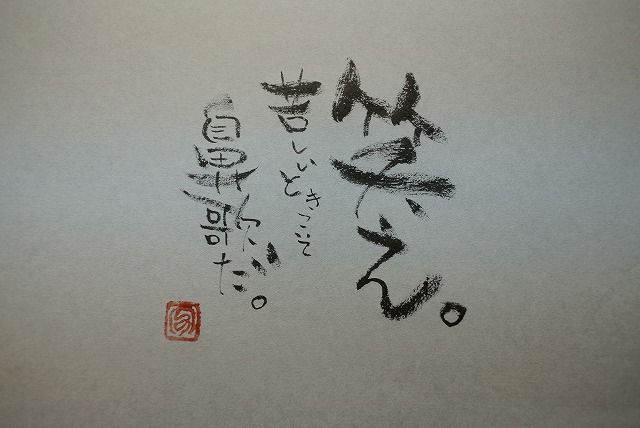 笑え。
苦しいときこそ
鼻歌だ。